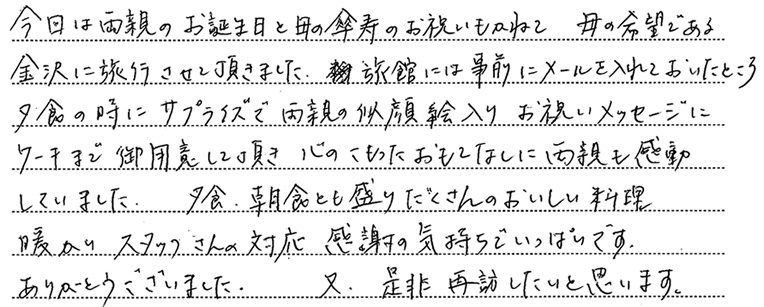 今回は両親のお誕生日と母の傘寿のお祝いもかねて 母の希望である
金沢に旅行させて頂きました。旅館には事前にメールを入れておいたところ
夕食の時にサプライズで両親の似顔絵入り お祝いメッセージに
ケーキまで御用意して頂き 心のこもったおもてなしに両親も感動
していました。 夕食、朝食とも盛りだくさんのおいしい料理
暖かい スタッフさんの対応 感謝の気持ちでいっぱいです。
ありがとうございました。 又、是非再訪したいと思います。